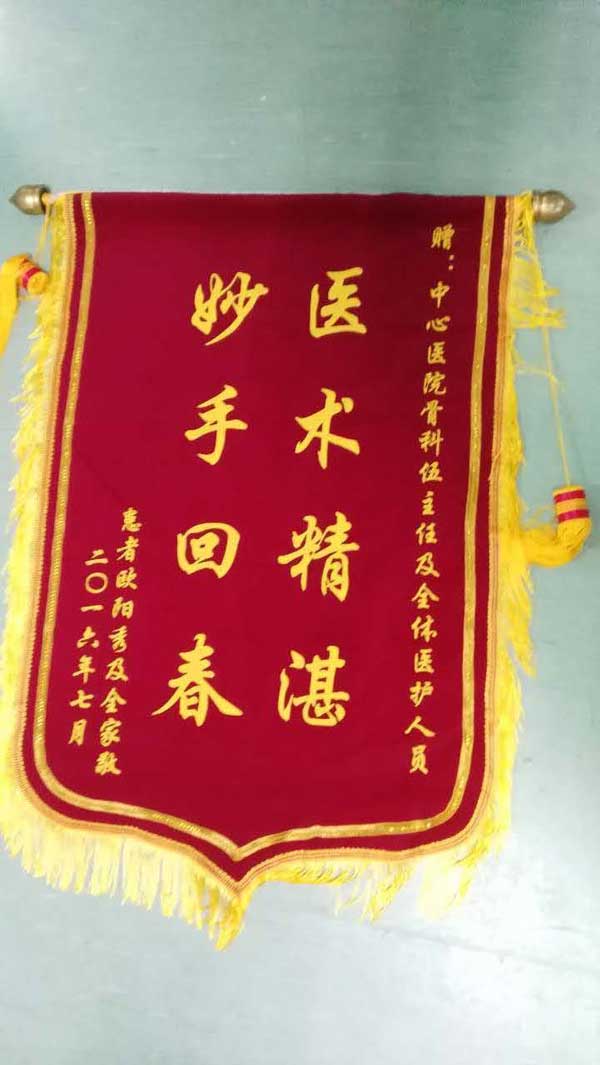 赠：中心医院骨科伍主任及全体医护人员
医术精湛
妙手回春
患者欧阳秀及全家敬
二〇一六年七月